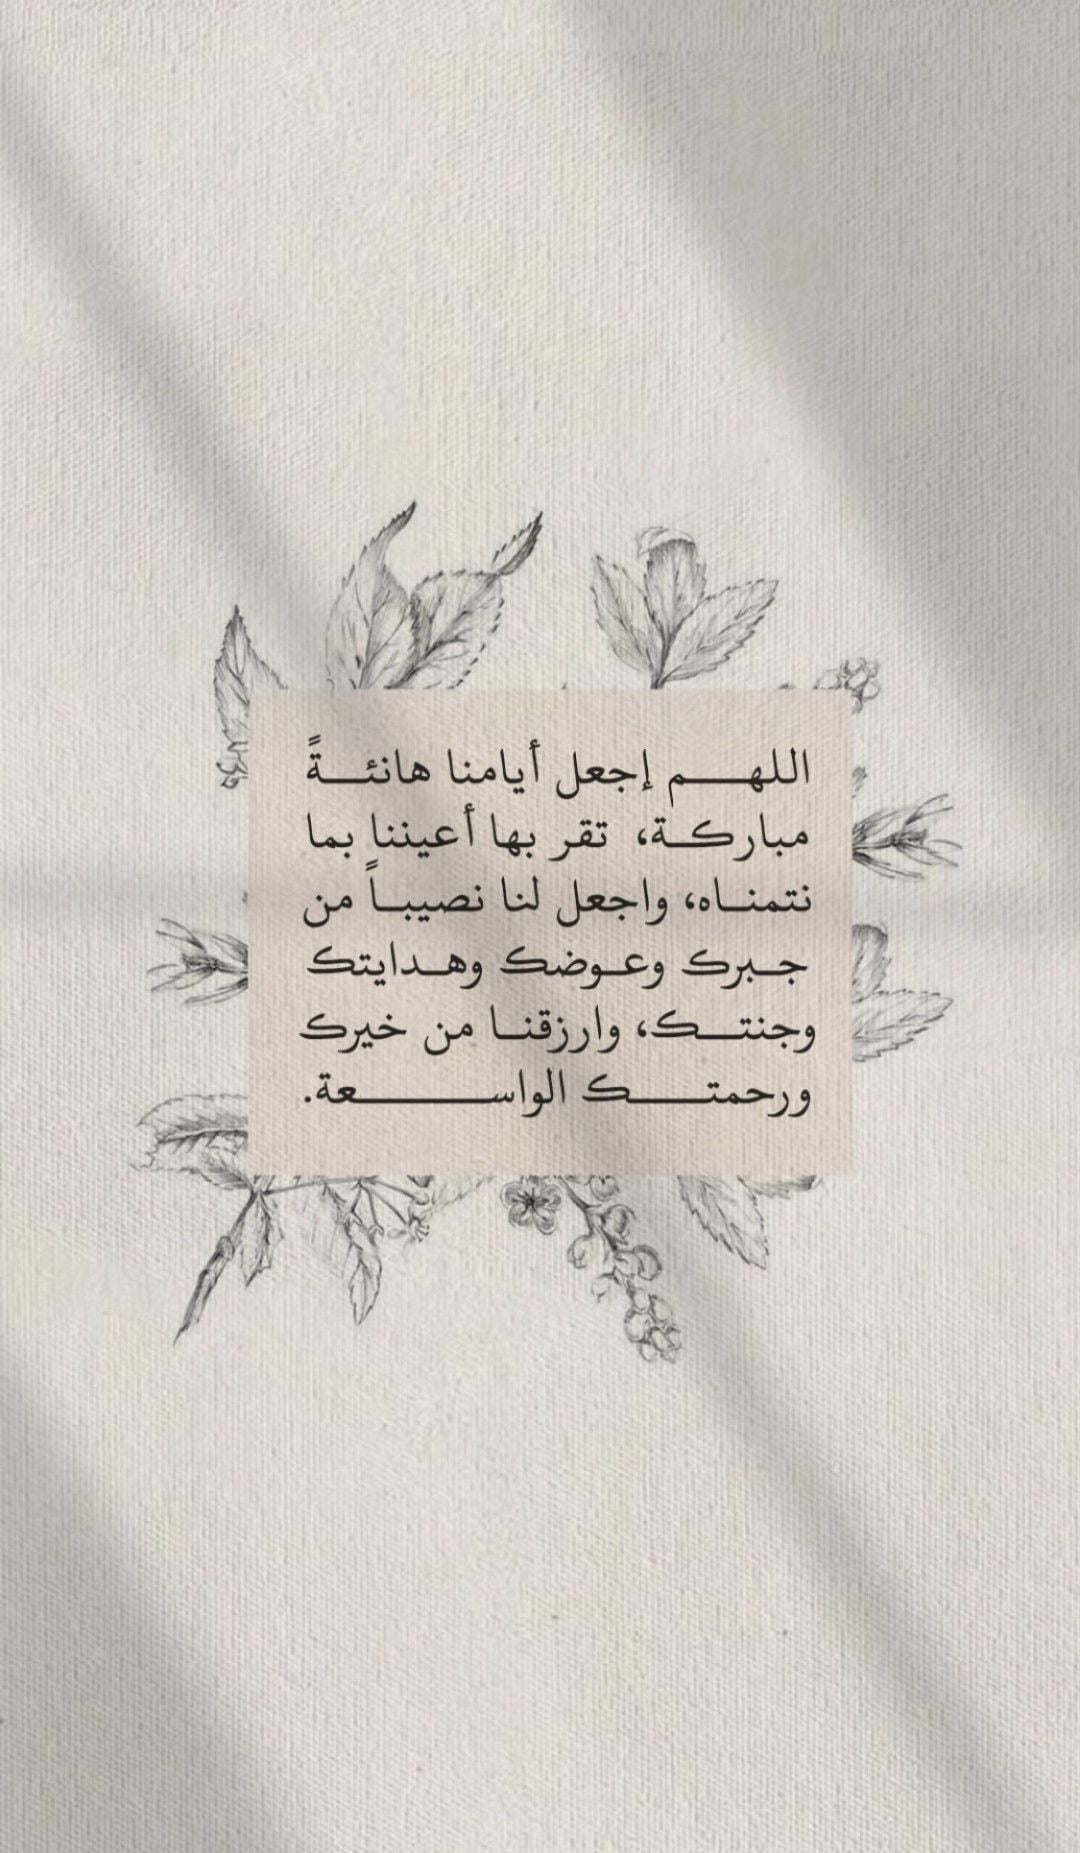 اللهم إجعل أيامنا هانئةً
مباركة، تقر بها أعيننا بما
نتمناه، واجعل لنا نصيباً من
جبرك وعوضك وهدايتك
وجنتك، وارزقنا من خيرك
ورحمتك الواسعة.